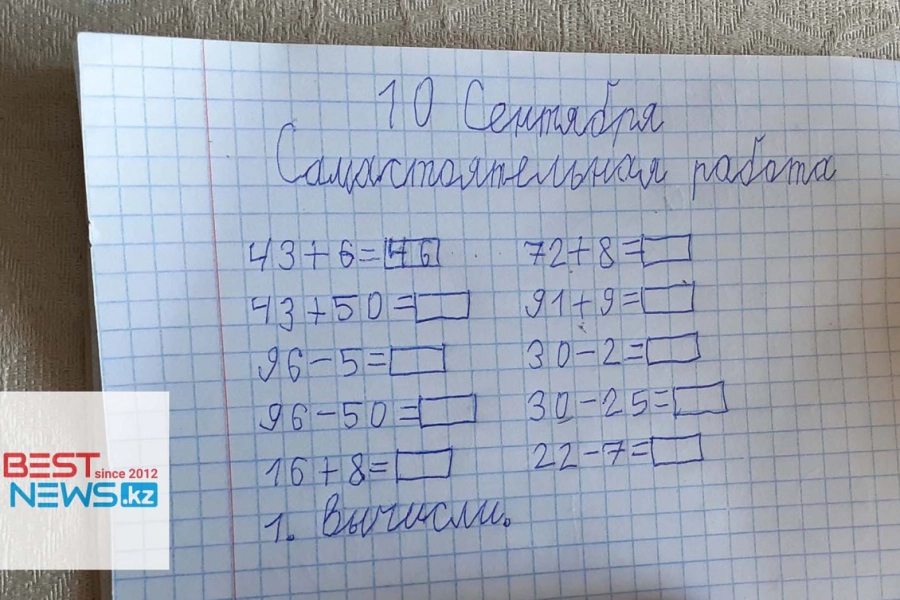 10 Сентября
Самастоятельная работа
43+6=46 72+8=
43+50= 91+9=
96-5= 30-2=
96-50= 30-25=
16+8= 22-7=
1. Вычисли.
BEST since 2012
NEWS.kz